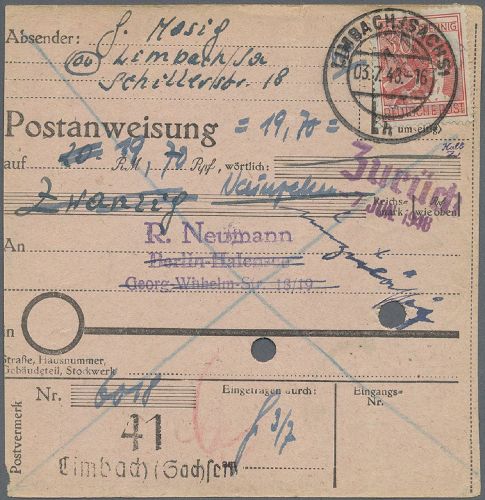 Absender: J. Mosig
Limbach/Sa
Schillerstr. 18
LIMBACH (SACHS)
03.7.48.-16
DEUTSCHE POST
Postanweisung = 19,70 =
umseitig)
auf 20. 19,70 RM Rpf, wörtlich:
Zurück
Zwanzig Neunzehn
Reichs- mark wie oben
7. JUL. 1948
An R. Neumann
Berlin-Halensee
Georg-Wilhelm-Str. 18/19
in
Straße, Hausnummer,
Gebäudeteil, Stockwerk
Postvermerk
Nr. 6018
Eingetragen durch:
Eingangs-
Nr.
3/7
41
Limbach (Sachsen)